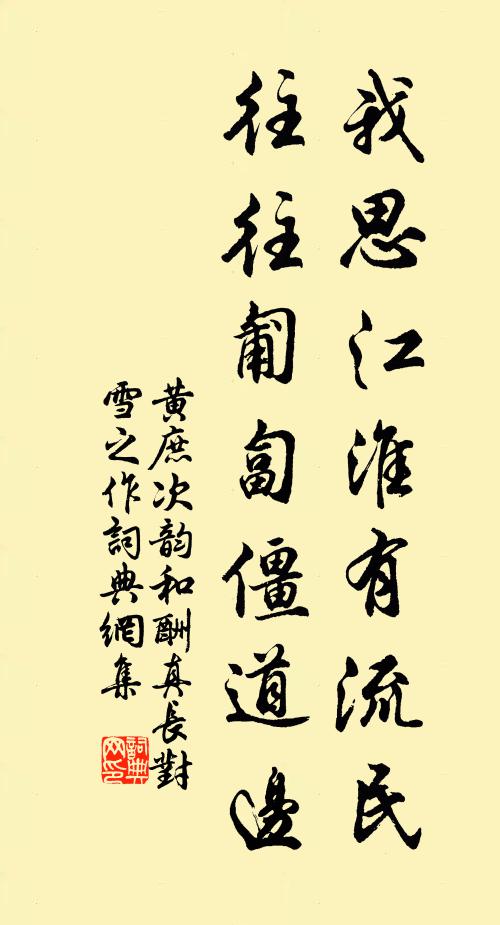 我思江淮有流民
往往匍匐僵道邊
黃庶次韵和酬真長對
雪之作詞典網集
詞典
网印